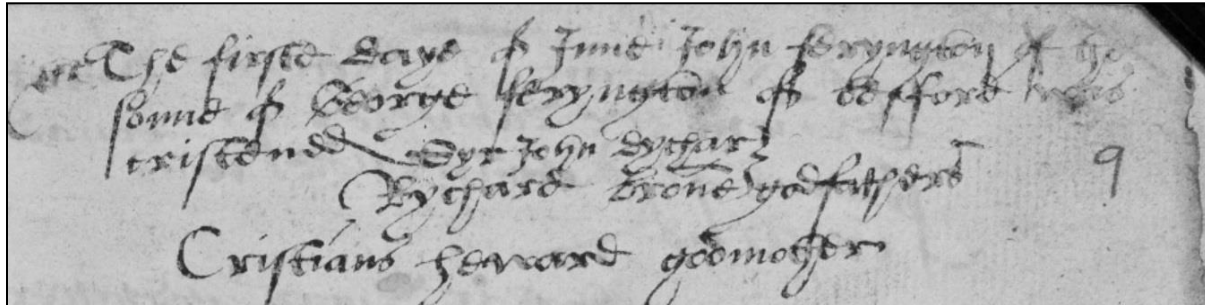 The firste daye of June John feryngton the
sonne of George feryngton of befford was
cristened Syr John
Rychard brone godfathers 9
Cristians heward godmother